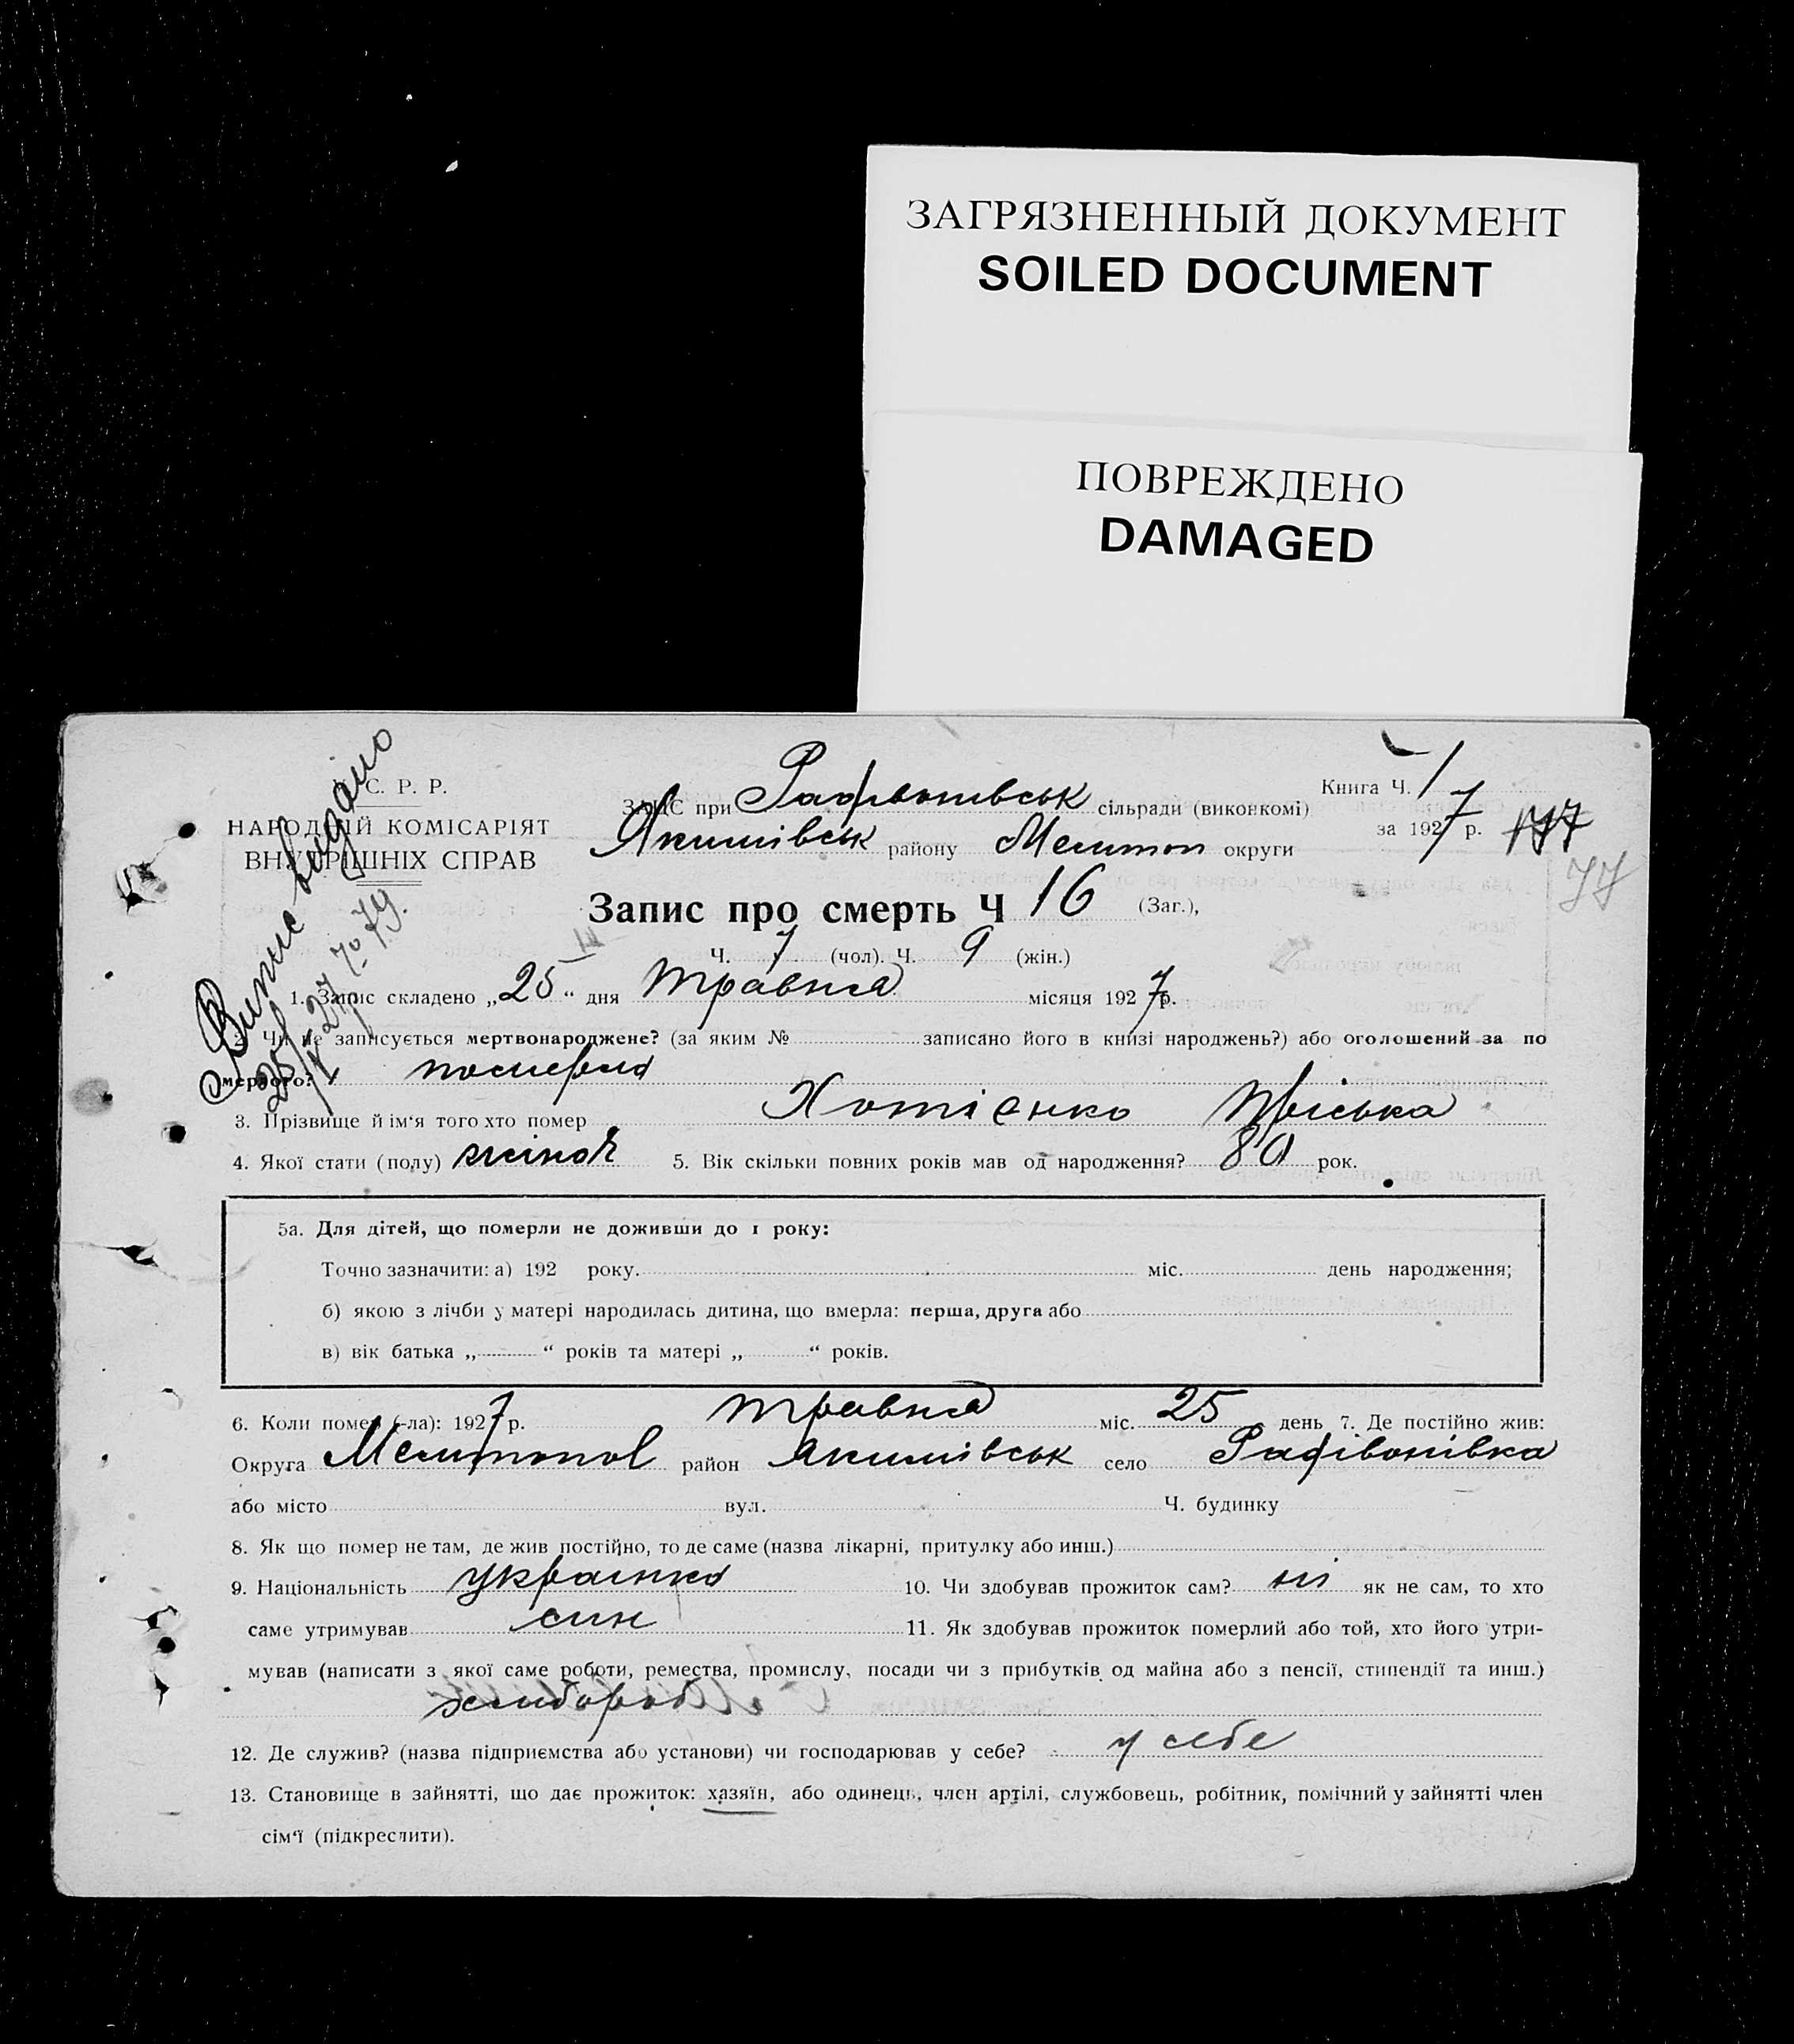 ЗАГРЯЗНЕННЫЙ ДОКУМЕНТ
SOILED DOCUMENT
ПОВРЕЖДЕНО
DAMAGED
С. Р. Р.
НАРОДНІЙ КОМІСАРІЯТ
ВНУТРІШНІХ СПРАВ
Випис видано
ЗАГС при сільради (виконкомі)
Якимівськ району Мелитоп округи
Книга Ч. 1
за 1927 р.
77
Запис про смерть Ч 16 (Заг.),
Ч. 7 (чол). Ч. 9 (жін.)
1. Запис складено „25“ дня травня місяця 1927 р.
2. Чи не записується мертвонароджене? (за яким № записано його в книзі народжень?) або оголошений за по
мерлого? померла
3. Прізвище й ім‘я того хто помер Хотієнко Пріська
4. Якої стати (полу) жіноч 5. Вік скільки повних років мав од народження? 80 рок.
5а. Для дітей, що померли не доживши до 1 року:
Точно зазначити: а) 192 року. міс. день народження;
б) якою з лічби у матері народилась дитина, що вмерла: перша, друга або
в) вік батька „ “ років та матері „ “ років.
6. Коли помер (-ла): 1927 р. травня міс. 25 день 7. Де постійно жив:
Округа Мелитопол район Якимівськ село
або місто вул. Ч. будинку
8. Як що помер не там, де жив постійно, то де саме (назва лікарні, притулку або инш.)
9. Національність українка 10. Чи здобував прожиток сам? ні як не сам, то хто
саме утримував син 11. Як здобував прожиток померлий або той, хто його утри-
мував (написати з якої саме роботи, ремества, промислу, посади чи з прибутків од майна або з пенсії, стипендії та инш.)
хлибороб
12. Де служив? (назва підприємства або установи) чи господарював у себе? у себе
13. Становище в зайнятті, що дає прожиток: хазяїн, або одинець, член артілі, службовець, робітник, помічний у зайнятті член
сім‘ї (підкреслити).